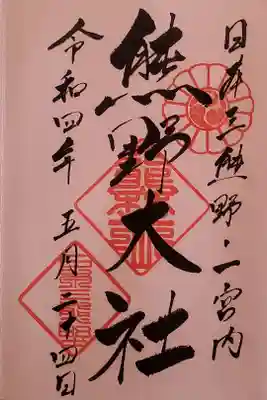 日本三熊野之一宮内
熊野大社
令和四年五月二十四日